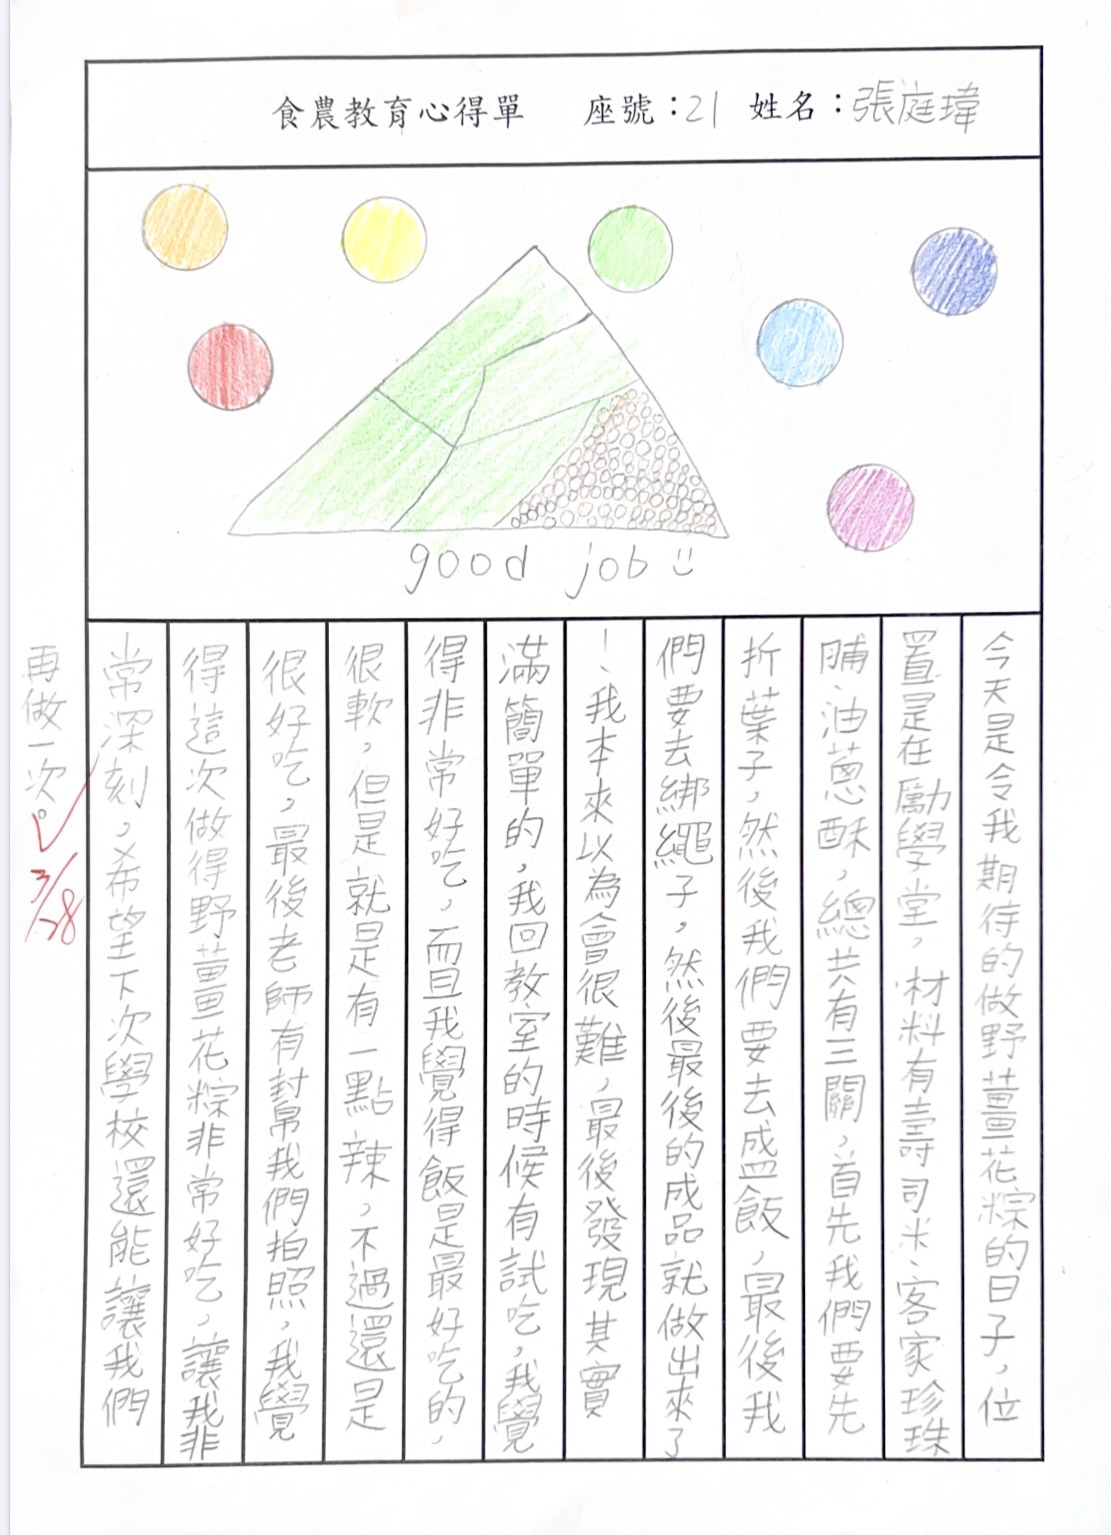 食農教育心得單　座號：21　姓名：張庭瑋
good job
今天是令我期待的做野薑花粽的日子，位
置是在勵學堂，材料有壽司米、客家珍珠
脯、油蔥酥，總共有三關，首先我們要先
折葉子，然後我們要去盛飯，最後我
們要去綁繩子，然後最後的成品就做出來了
！、我本來以為會很難，最後發現其實
滿簡單的，我回教室的時候有試吃，我覺
得非常好吃，而且我覺得飯是最好吃的，
很軟，但是就是有一點辣，不過還是
很好吃，最後老師有封帛我們拍照，我覺
得這次做得野薑花粽非常好吃，讓我非
常深刻，希望下次學校還能讓我們
再做一次。
3/28